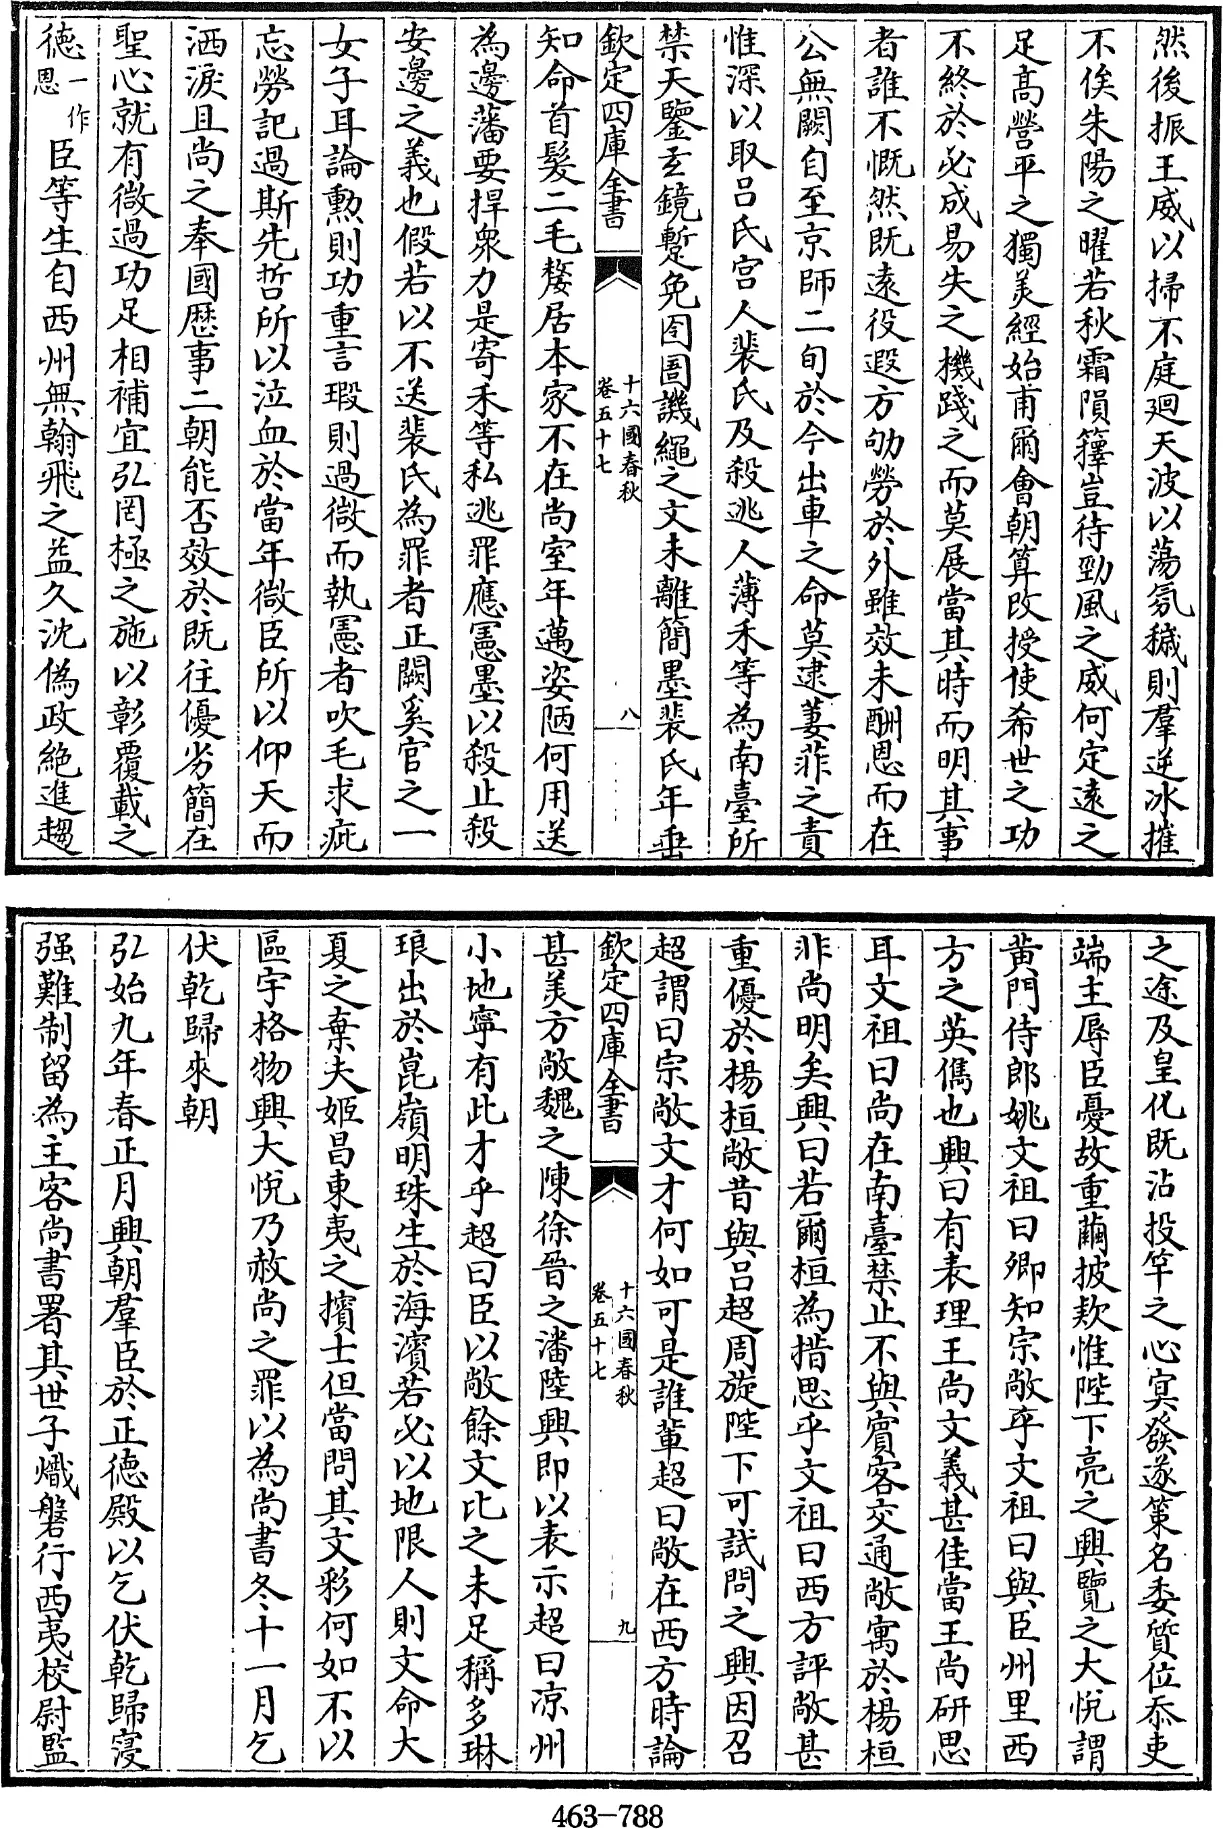 然後振王威以掃不庭廻天波以蕩氛穢則羣逆冰摧
不俟朱陽之曜若秋霜隕籜豈待勁風之威何定遠之
足髙營平之獨美經始甫爾會朝算改授使希世之功
不終於必成易失之機踐之而莫展當其時而明其事
者誰不慨然既遠役遐方劬勞於外雖效未酬恩而在
公無闕自至京師二旬於今出車之命莫逮萋菲之責
惟深以取吕氏宫人裴氏及殺逃人薄禾等為南臺所
禁天鑒玄鏡蹔免囹圄譏繩之文未離簡墨裴氏年垂
欽定四庫全書
十六國春秋
卷五十七
八
知命首髮二毛嫠居本家不在尚室年邁姿陋何用送
為邊藩要捍衆力是寄禾等私逃罪應憲墨以殺止殺
安邊之義也假若以不送裴氏為罪者正闕奚官之一
女子耳論勲則功重言瑕則過微而執憲者吹毛求疵
忘勞記過斯先哲所以泣血於當年微臣所以仰天而
洒淚且尚之奉國歴事二朝能否效於既往優劣簡在
聖心就有微過功足相補宜弘罔極之施以彰覆載之
德一作恩臣等生自西州無翰飛之益久沈偽政絶進趨
之途及皇化既沾投竿之心冥發遂策名委質位忝吏
端主辱臣憂故重繭披欵惟陛下亮之興覽之大悦謂
黄門侍郎姚文祖曰卿知宗敞乎文祖曰與臣州里西
方之英儁也興曰有表理王尚文義甚佳當王尚研思
耳文祖曰尚在南臺禁止不與賓客交通敞寓於楊桓
非尚明矣興曰若爾桓為措思乎文祖曰西方評敞甚
重優於楊桓敞昔與吕超周旋陛下可試問之興因召
超謂曰宗敞文才何如可是誰輩超曰敞在西方時論
欽定四庫全書
十六國春秋
卷五十七
九
甚美方敞魏之陳徐晉之潘陸興即以表示超曰凉州
小地寧有此才乎超曰臣以敞餘文比之未足稱多琳
琅出於崑嶺明珠生於海濱若必以地限人則文命大
夏之棄夫姬昌東夷之擯士但當問其文彩何如不以
區宇格物興大悦乃赦尚之罪以為尚書冬十一月乞
伏乾歸來朝
弘始九年春正月興朝羣臣於正德殿以乞伏乾歸寖
强難制留為主客尚書署其世子熾磐行西夷校尉監
463-788